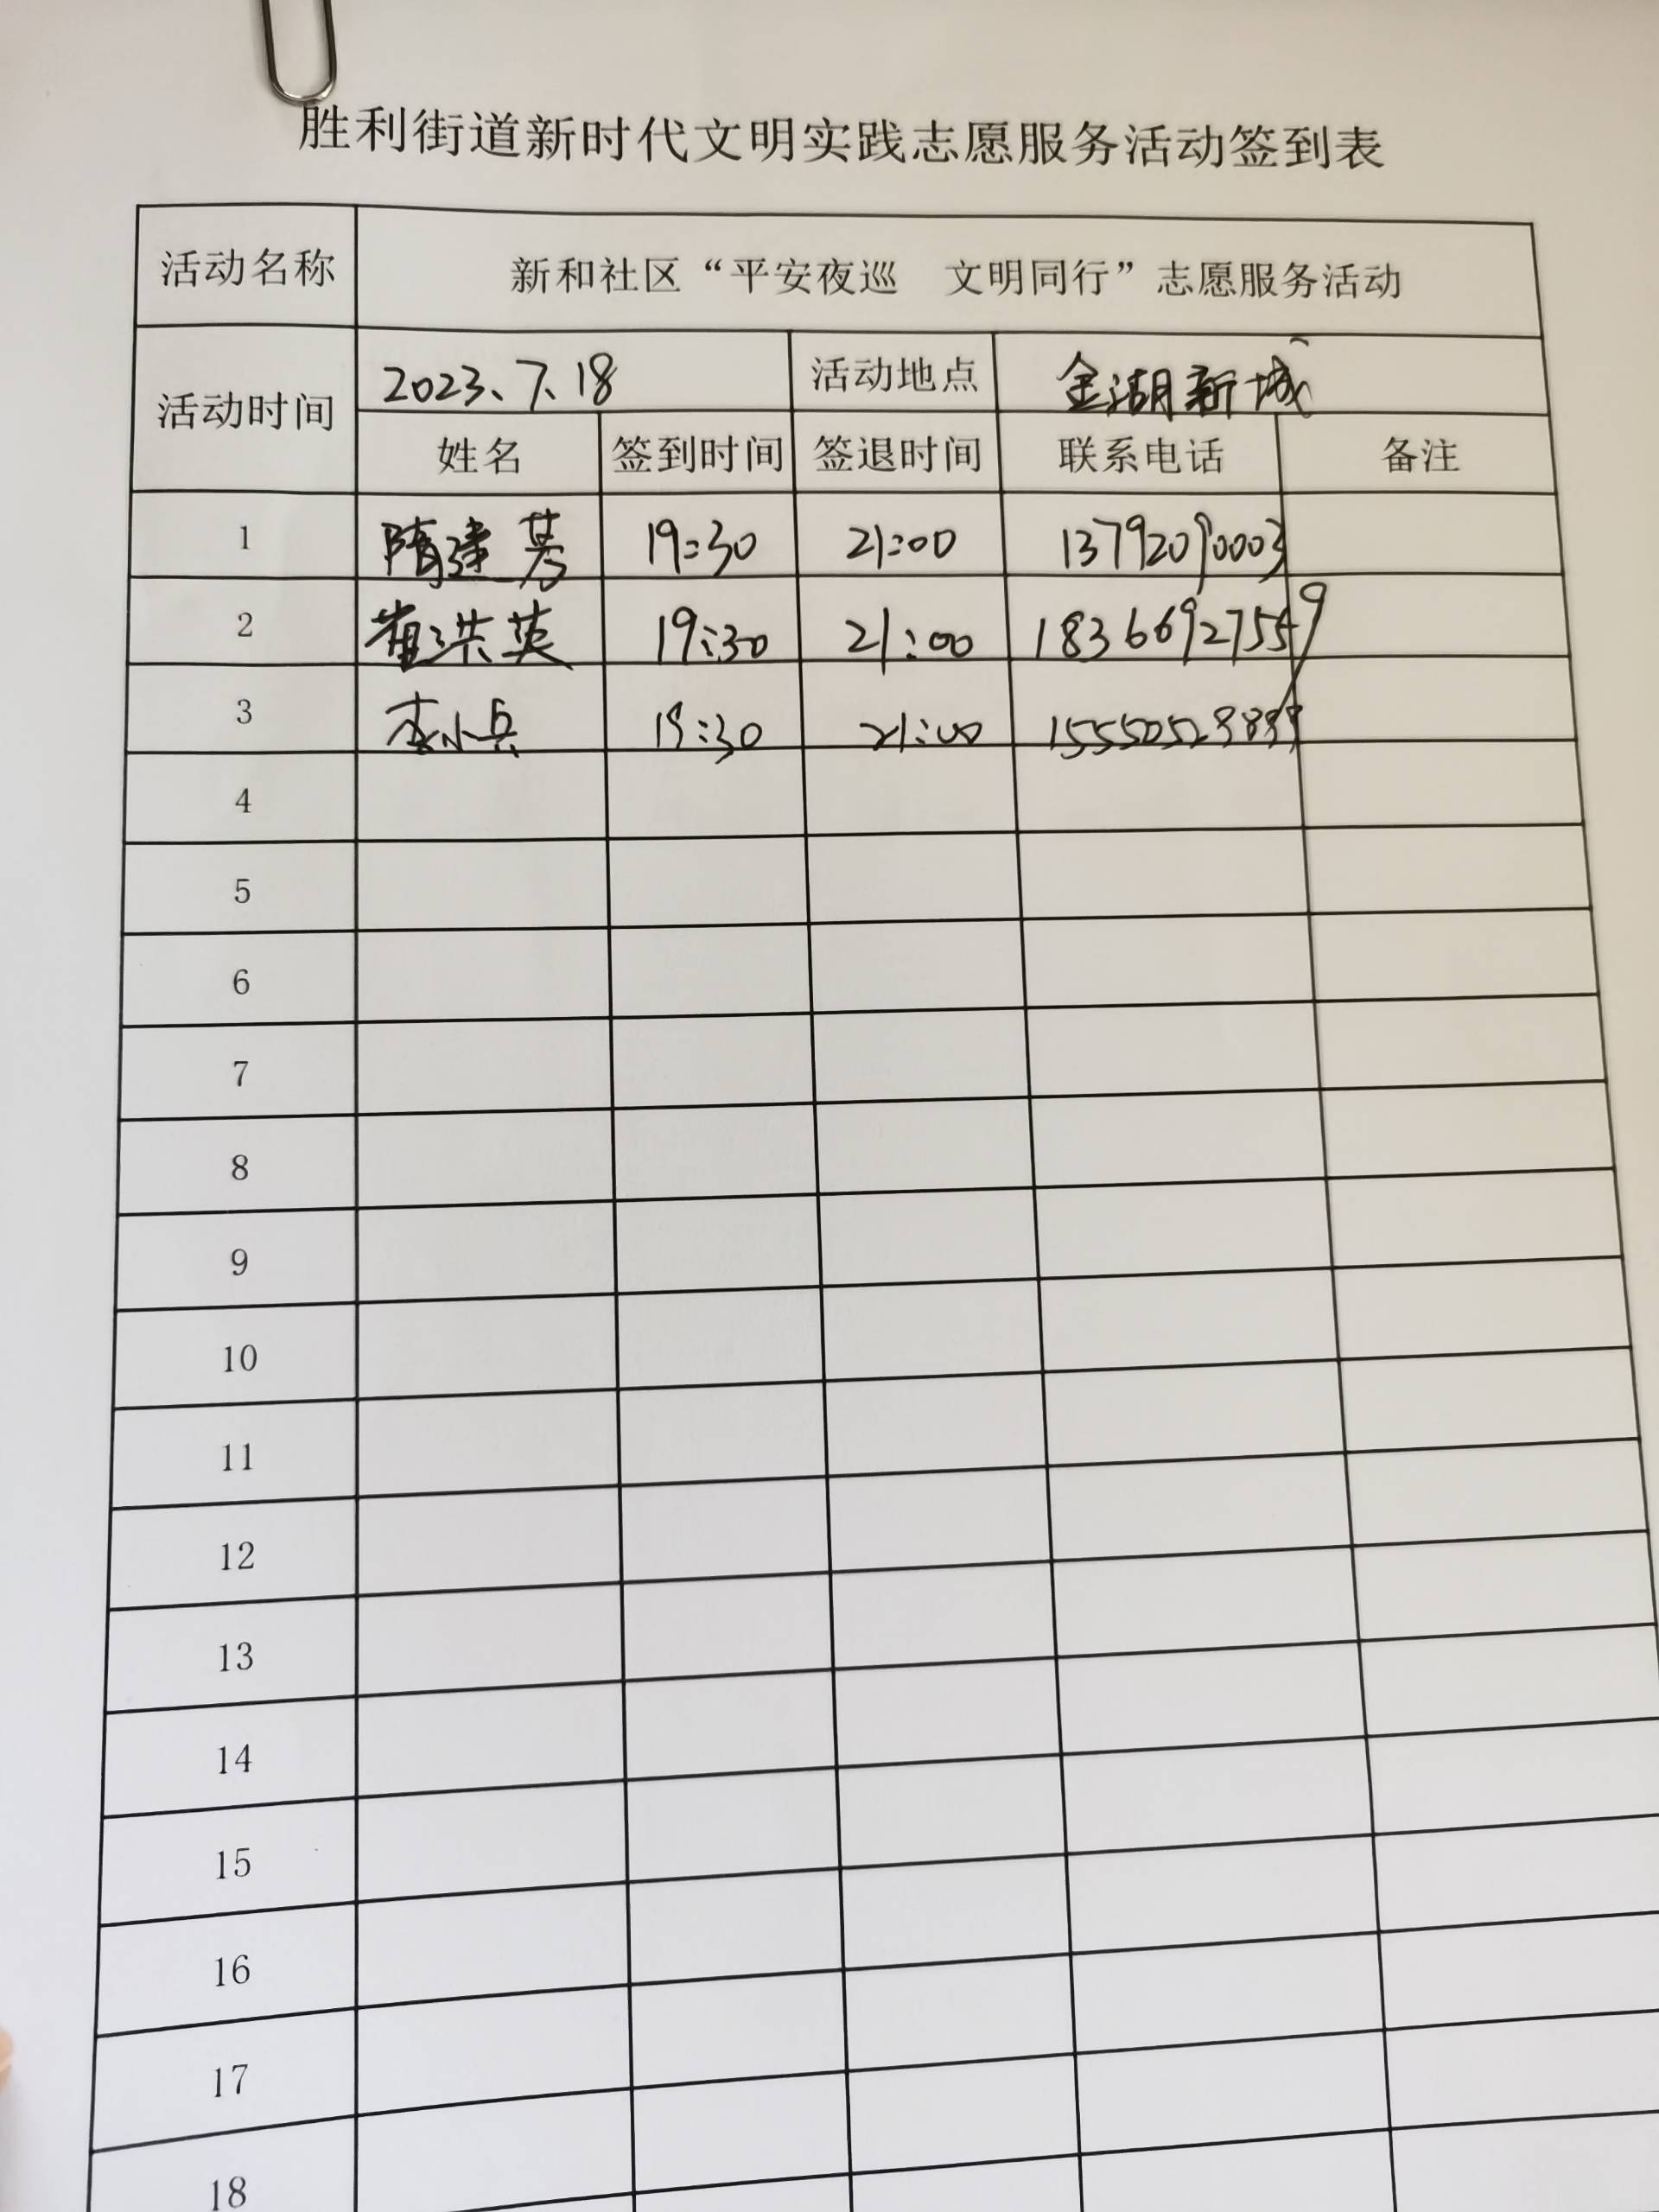 胜利街道新时代文明实践志愿服务活动签到表
活动名称 新和社区“平安夜巡 文明同行”志愿服务活动
活动时间 2023、7、18 活动地点 金湖新城
姓名 签到时间 签退时间 联系电话 备注
1 隋建 19:30 21:00 13792090003
2 崔洪英 19:30 21:00 18366927559
3 李小兵 19:30 21:00
4
5
6
7
8
9
10
11
12
13
14
15
16
17
18